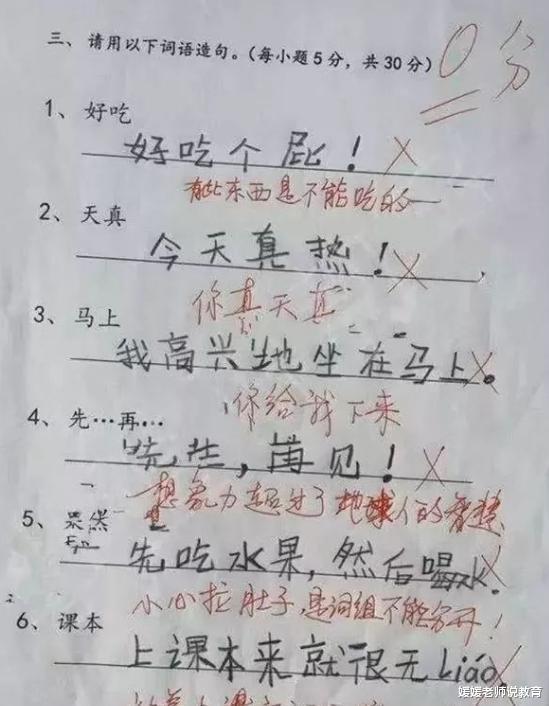 三、请用以下词语造句。(每小题5分，共30分) 0分
1、好吃
好吃个屁！
有些东西是不能吃的
2、天真
今天真热！
你真天真
3、马上
我高兴地坐在马上。
你给我下来
4、先…再…
先生，再见！
想象力超过了地球人的智慧
5、果然
先吃水果，然后喝水。
小心拉肚子，是词组不能分开！
6、课本
上课本来就很无Liáo
媛媛老师说教育